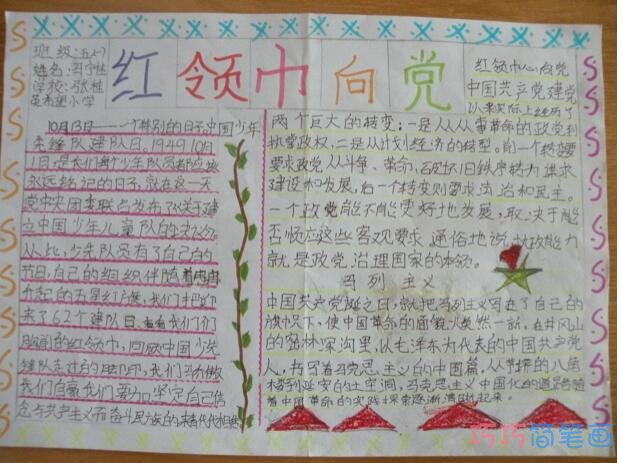 班级:五(一)
姓名:
学校:张桂
英希望小学
红领巾向党
红领巾心向党
中国共产党建党
以来实际上经历了
两个巨大的转变:一是从从事革命的政党到
执掌政权,二是从计划经济的转型。前一个转变要
要求政党从斗争、革命、破坏旧秩序转为谋求
建设和发展,后一个转变则要求法治和民主。
一个政党能不能更好地发展,取决于能
否顺应这些客观要求,通俗地说,执政能力
就是政党治理国家的本领。
马列主义
中国共产党诞生之日,就把马列主义写在了自己的
旗帜下,使中国革命的面貌火焕然一新,在井冈山
的密林深沟里,以毛泽东为代表的中国共产党
人,书写着马克思主义的中国篇,从茅坪的八角
楼到延安的土窑洞,马克思主义中国化的道路
着中国革命的实践探索逐渐清晰起来。
10月13日——一个特别的日子,中国少年
先锋队建队日。1949年10月
1日,是我们每个少年队员都应该
永远铭记的日子,就在这一天
党中央团委联合发布了《关于建
立中国少年儿童队的决议》。
从此,少先队员有了自己的
节日,自己的组织伴随着冉冉
升起的五星红旗,我们才把印
来了62个建队日。看看我们们
胸前的红领巾,回顾中国少先
锋队走过的脚印,我们
我们自豪我们要加坚定自己信
念为共产主义而奋斗民族的未来
巧巧简笔画